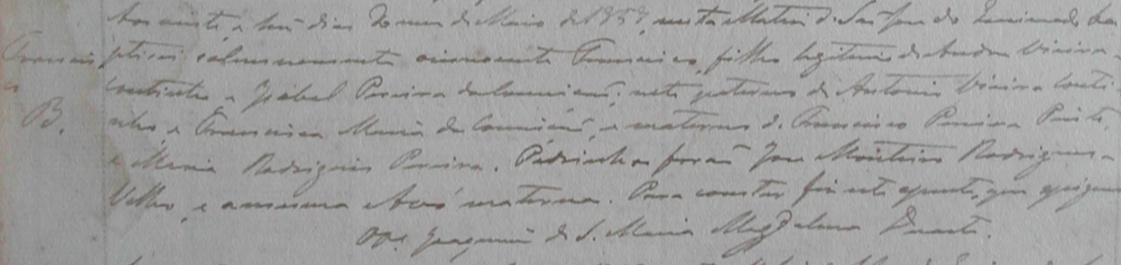 Aos vinte e hum dias do mes de Maio de 1857 nesta Matriz de Sao Jose do bap
Francis
co
B.
ptisei solemnemente o innocente Francisco, filho legitimo de Andre Vieira
Coutinho, e Izabel Pereira da Conceicaõ; neto paterno de Antonio Vieira Couti
nho e Francisca Maria da Conceicaõ, e materno de Francisco Pereira Pinto,
e Maria Rodrigues Pereira. Padrinhos foraõ Jose Monteiro Rodrigues
Velho, e a mesma Avó materna. Para constar fiz este assento, que assignei
O Joaquim de S. Maria Magdalena Duarte.